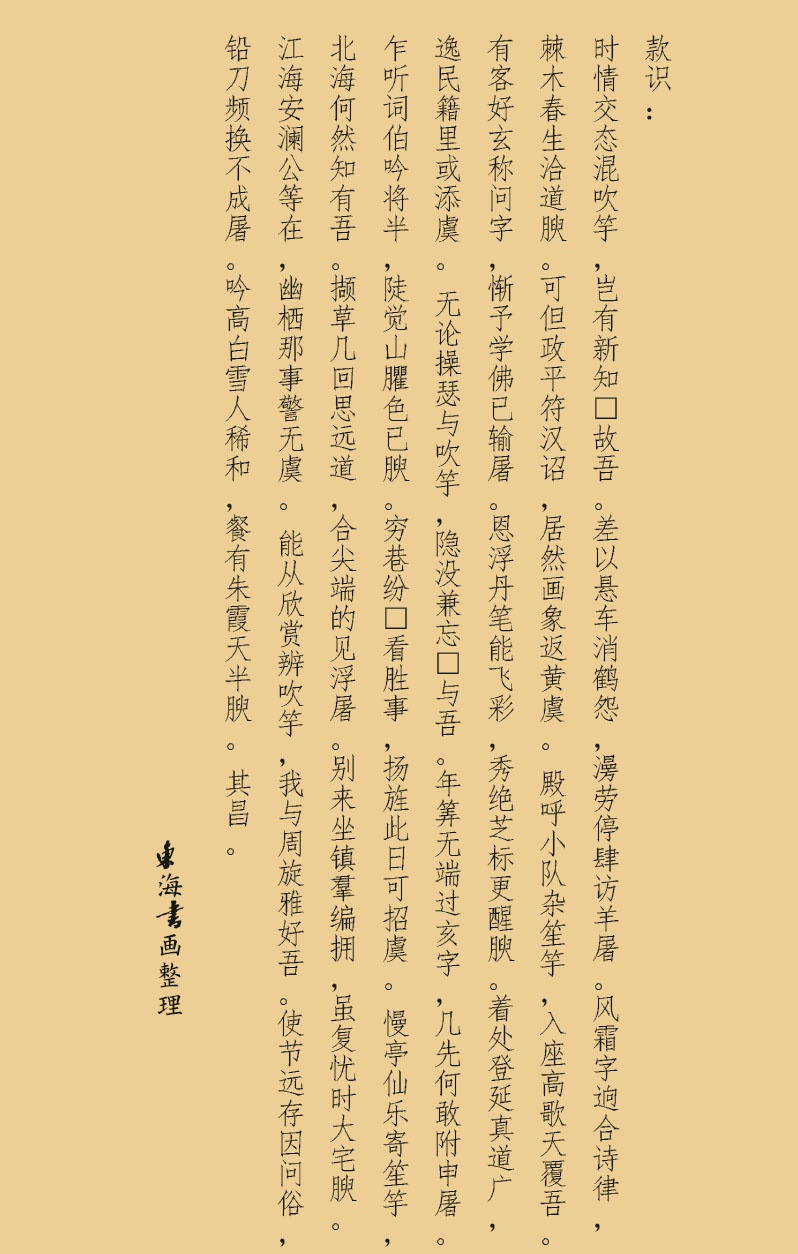 款识：
时情交态混吹竽，岂有新知□故吾。差以悬车消鹤怨，漫劳停肆访羊屠。风霜字逈合诗律，
棘木春生洽道腴。可但政平符汉诏，居然画象返黄虞。殿呼小队杂笙竽，入座高歌天覆吾。
有客好玄称问字，惭予学佛已输屠。恩浮丹笔能飞彩，秀绝芝标更醒腴。着处登延真道广，
逸民籍里或添虞。无论操瑟与吹竽，隐没兼忘□与吾。年筭无端过亥字，几先何敢附申屠。
乍听词伯吟将半，陡觉山臞色已腴。穷巷纷□看胜事，扬旌此日可招虞。慢亭仙乐寄笙竽，
北海何然知有吾。撷草几回思远道，合尖端的见浮屠。别来坐镇羣编拥，虽复忧时大宅腴。
江海安澜公等在，幽栖那事警无虞。能从欣赏辨吹竽，我与周旋雅好吾。使节远存因问俗，
铅刀频换不成屠。吟高白雪人稀和，餐有朱霞天半腴。其昌。
東海書画整理